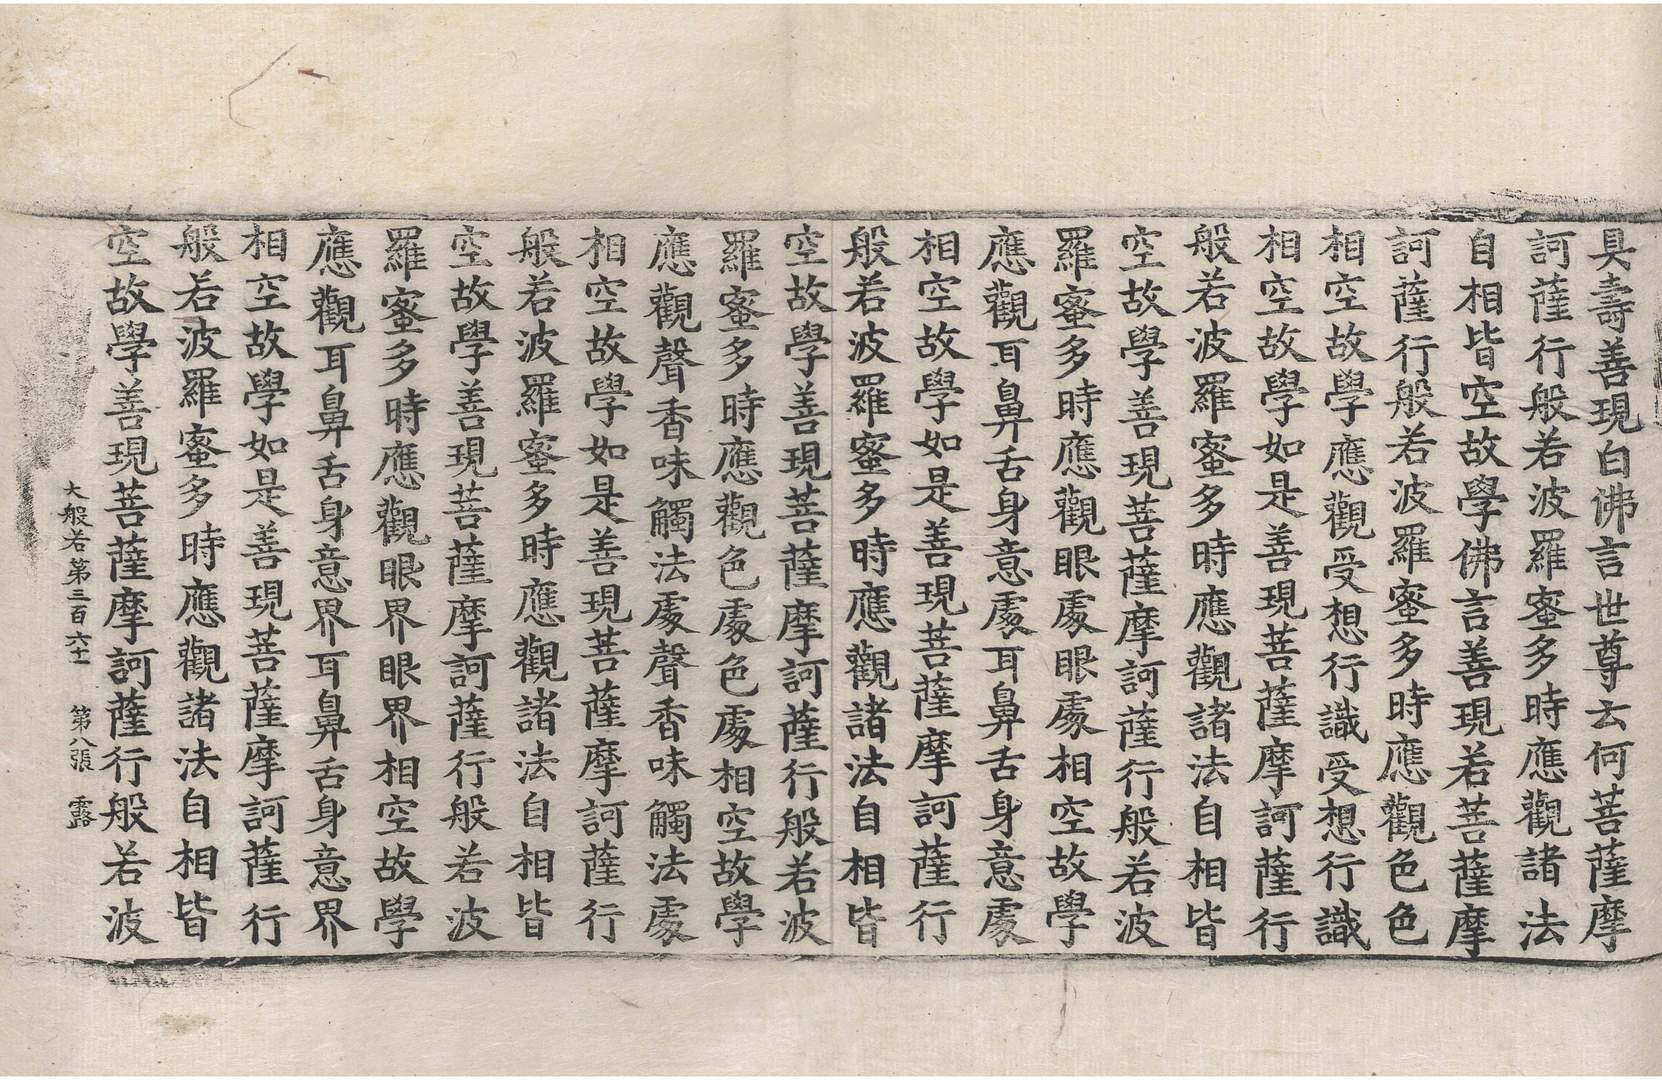 具壽善現白佛言世尊云何菩薩摩
訶薩行般若波羅蜜多時應觀諸法
自相皆空故學佛言善現若菩薩摩
訶薩行般若波羅蜜多時應觀色色
相空故學應觀受想行識受想行識
相空故學如是善現菩薩摩訶薩行
般若波羅蜜多時應觀諸法自相皆
空故學善現菩薩摩訶薩行般若波
羅蜜多時應觀眼處眼處相空故學
應觀耳鼻舌身意處耳鼻舌身意處
相空故學如是善現菩薩摩訶薩行
般若波羅蜜多時應觀諸法自相皆
空故學善現菩薩摩訶薩行般若波
羅蜜多時應觀色處色處相空故學
應觀聲香味觸法處聲香味觸法處
相空故學如是善現菩薩摩訶薩行
般若波羅蜜多時應觀諸法自相皆
空故學善現菩薩摩訶薩行般若波
羅蜜多時應觀眼界眼界相空故學
應觀耳鼻舌身意界耳鼻舌身意界
相空故學如是善現菩薩摩訶薩行
般若波羅蜜多時應觀諸法自相皆
空故學善現菩薩摩訶薩行般若波
大般若第三百六十一 第八張 露